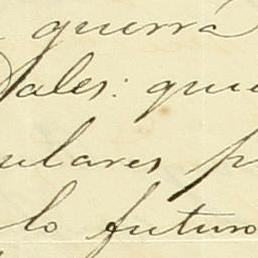 guerra
ales: que
ulares p
lo futuro